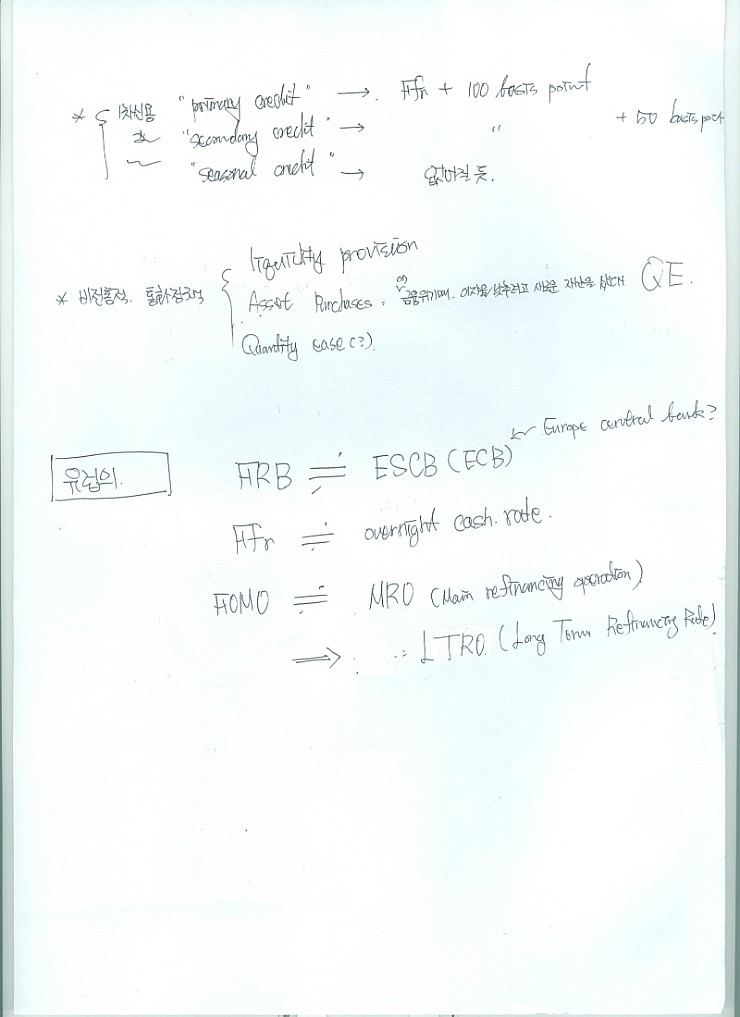 * 1차신용 "primary credit" → ffr + 100 basis point
2차 "secondary credit" → " + 50 basis point
"seasonal credit" → 없어질 듯.
liquidity provision
* 비전통적 통화정책 Asset Purchases. 금융위기때. 이자율 낮추려고 새로운 자산을 샀대 QE.
Quantity ease(?)
← Europe central bank?
유럽의. FRB ≒ ESCB (ECB)
ffr ≒ overnight cash rate.
FOMO ≒ MRO (Main refinancing operation)
⇒ LTRO. (Long Term Refinancing Rate)